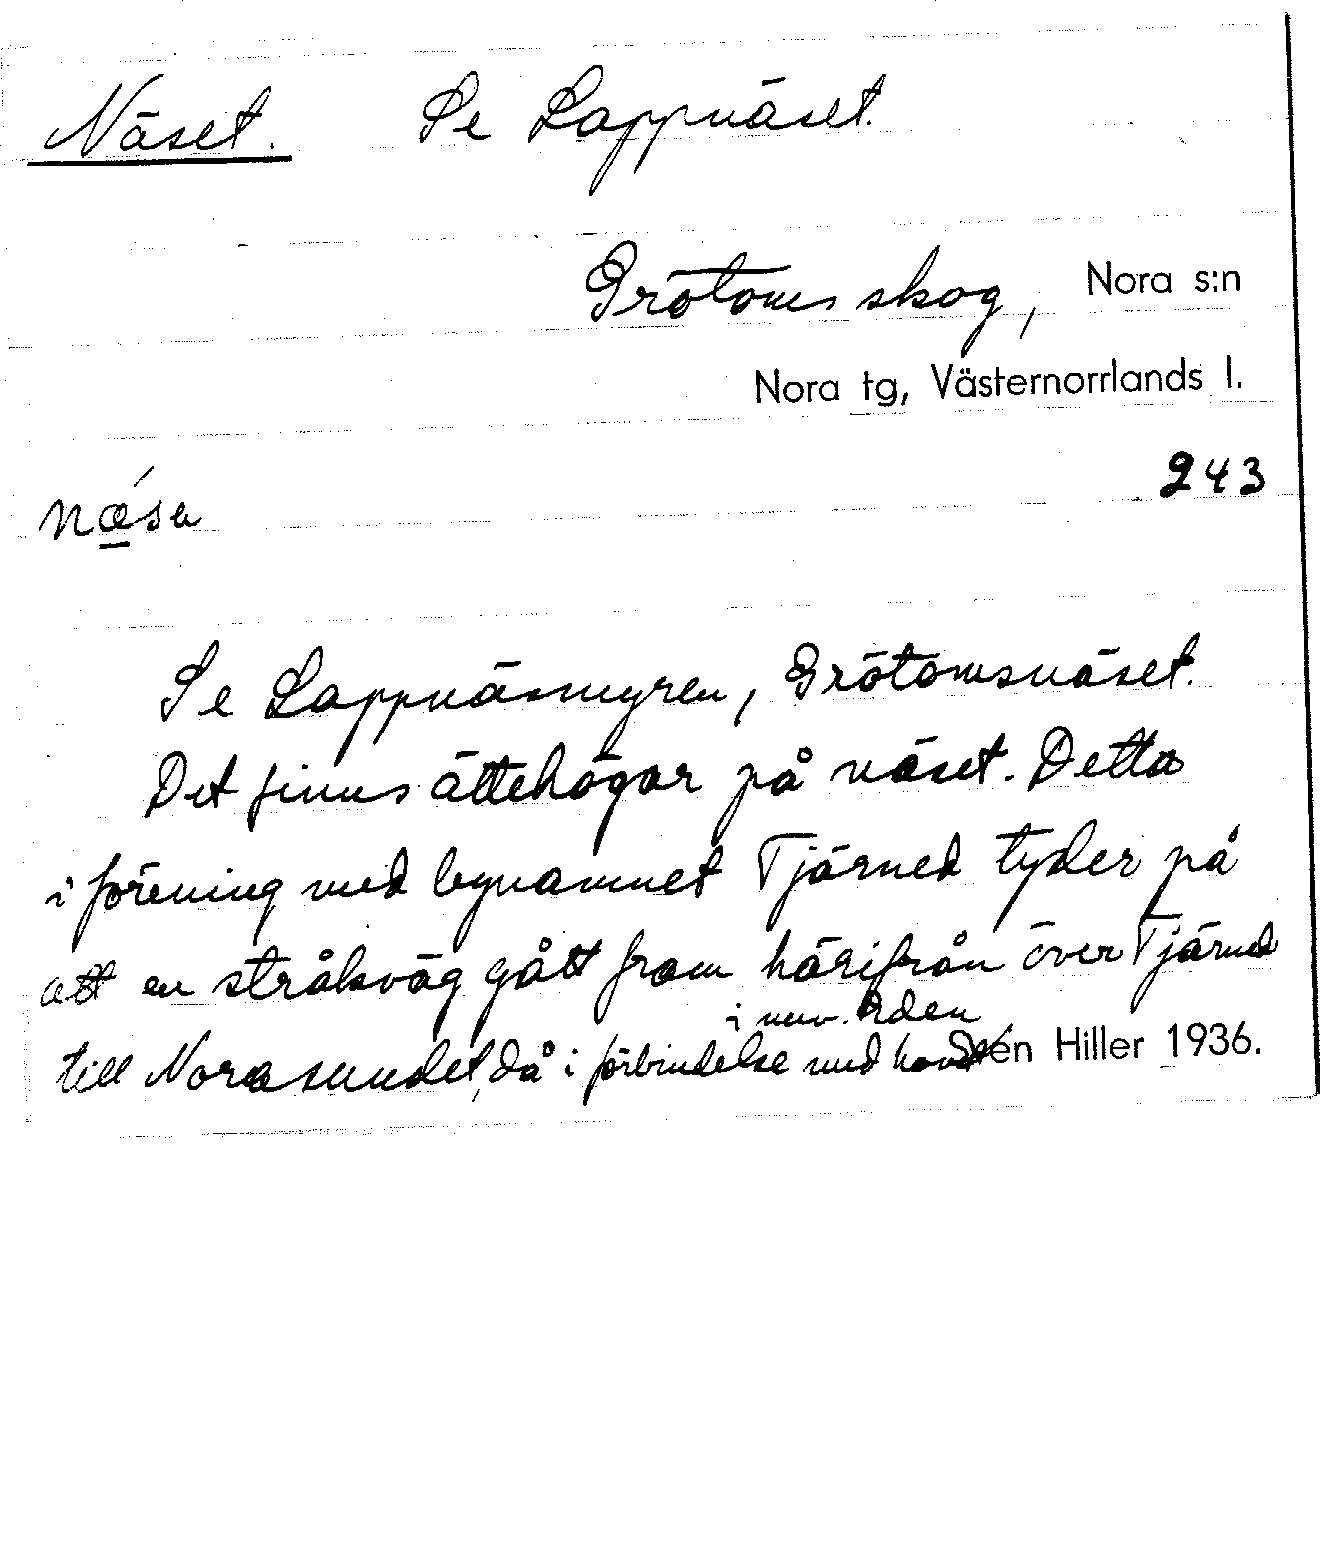 Näset. Se Lappnäset.
Grötoms skog, Nora s:n
Nora tg, Västernorrlands l.
243
næ´sɐ
Se Lappnäsmyren, Grötomsnäset.
Det finns ättehögar på näset. Detta
i förening med bynamnet Tjärned tyder på
att en stråkväg gått fram härifrån över Tjärned
i nuv. tiden
till Norasundet, då i förbindelse med havet
Sven Hiller 1936.